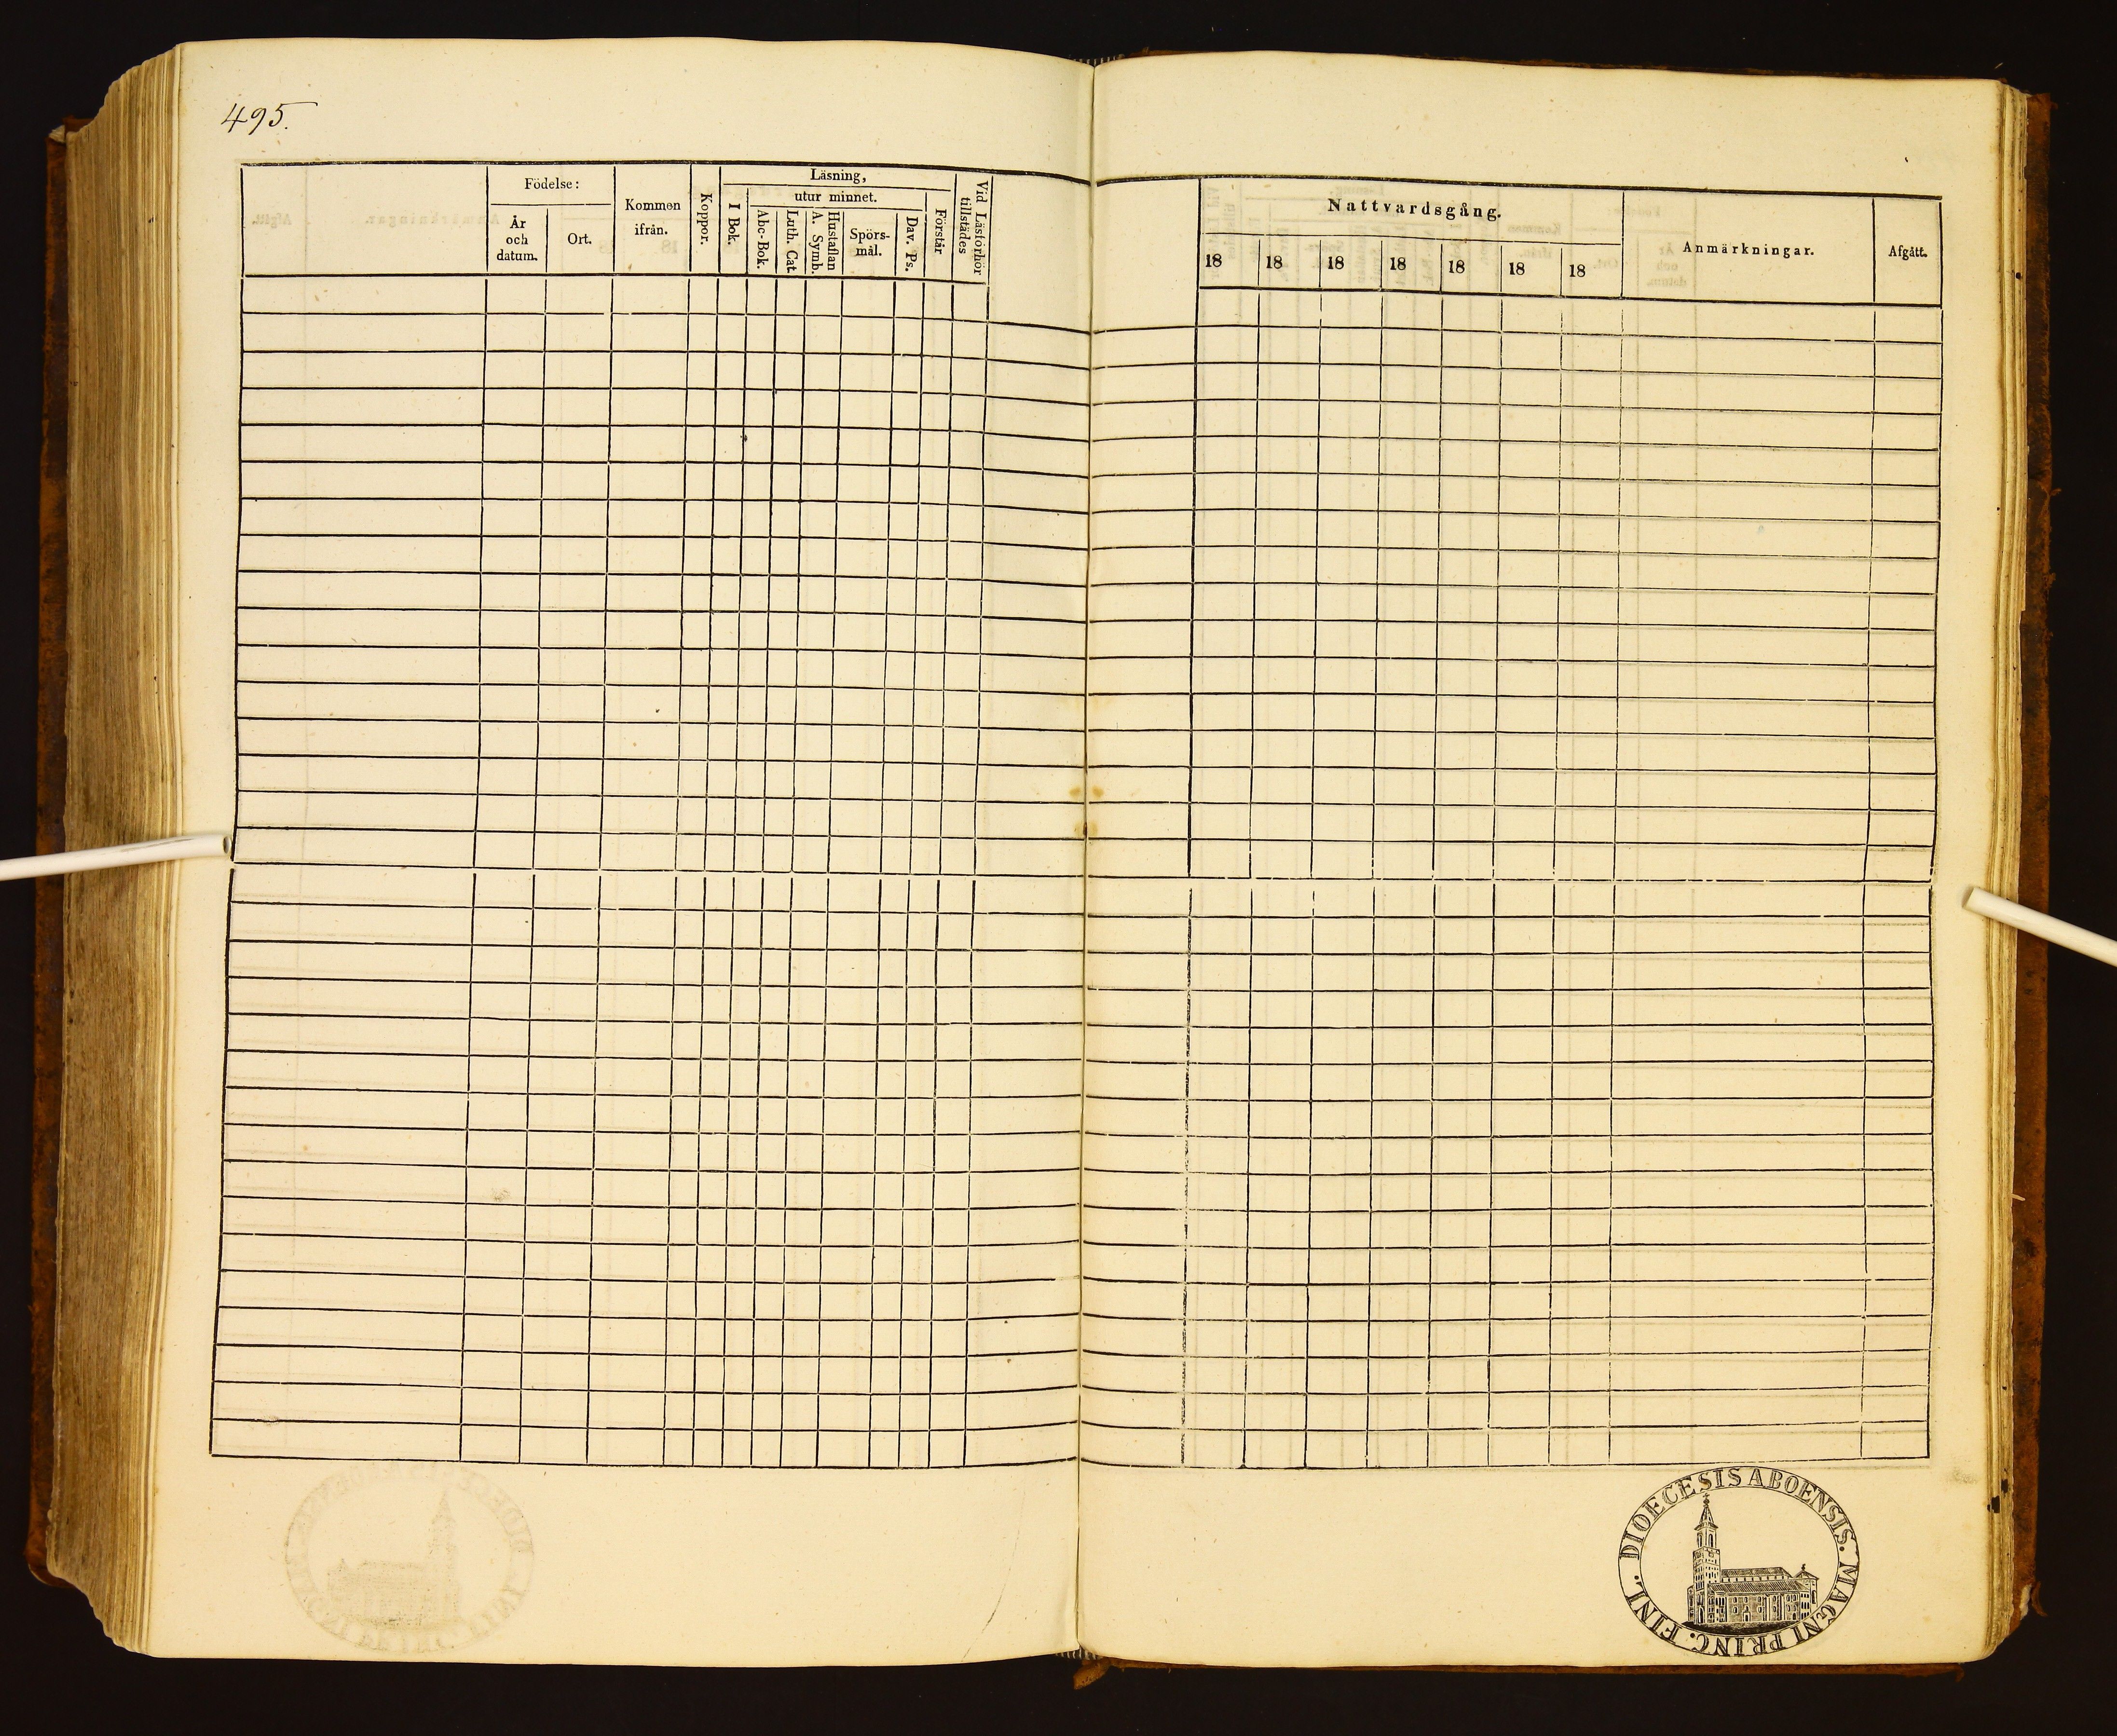 495.
Födelse:
År
och
datum.
Ort.
Kommen
ifrån.
Koppor.
Läsning,
I Bok.
utur minnet.
Abc-Bok.
Luth. Cat.
Hustaflan
A. Symb.
Spörs-
mål.
Dav. Ps.
Förstår
Vid Läsförhör
tillstädes
Nattvardsgång.
18 18 18 18 18 18 18
Anmärkningar.
Afgått.
DIOECESIS ABOENSIS. MAGNI PRINC. FINL.